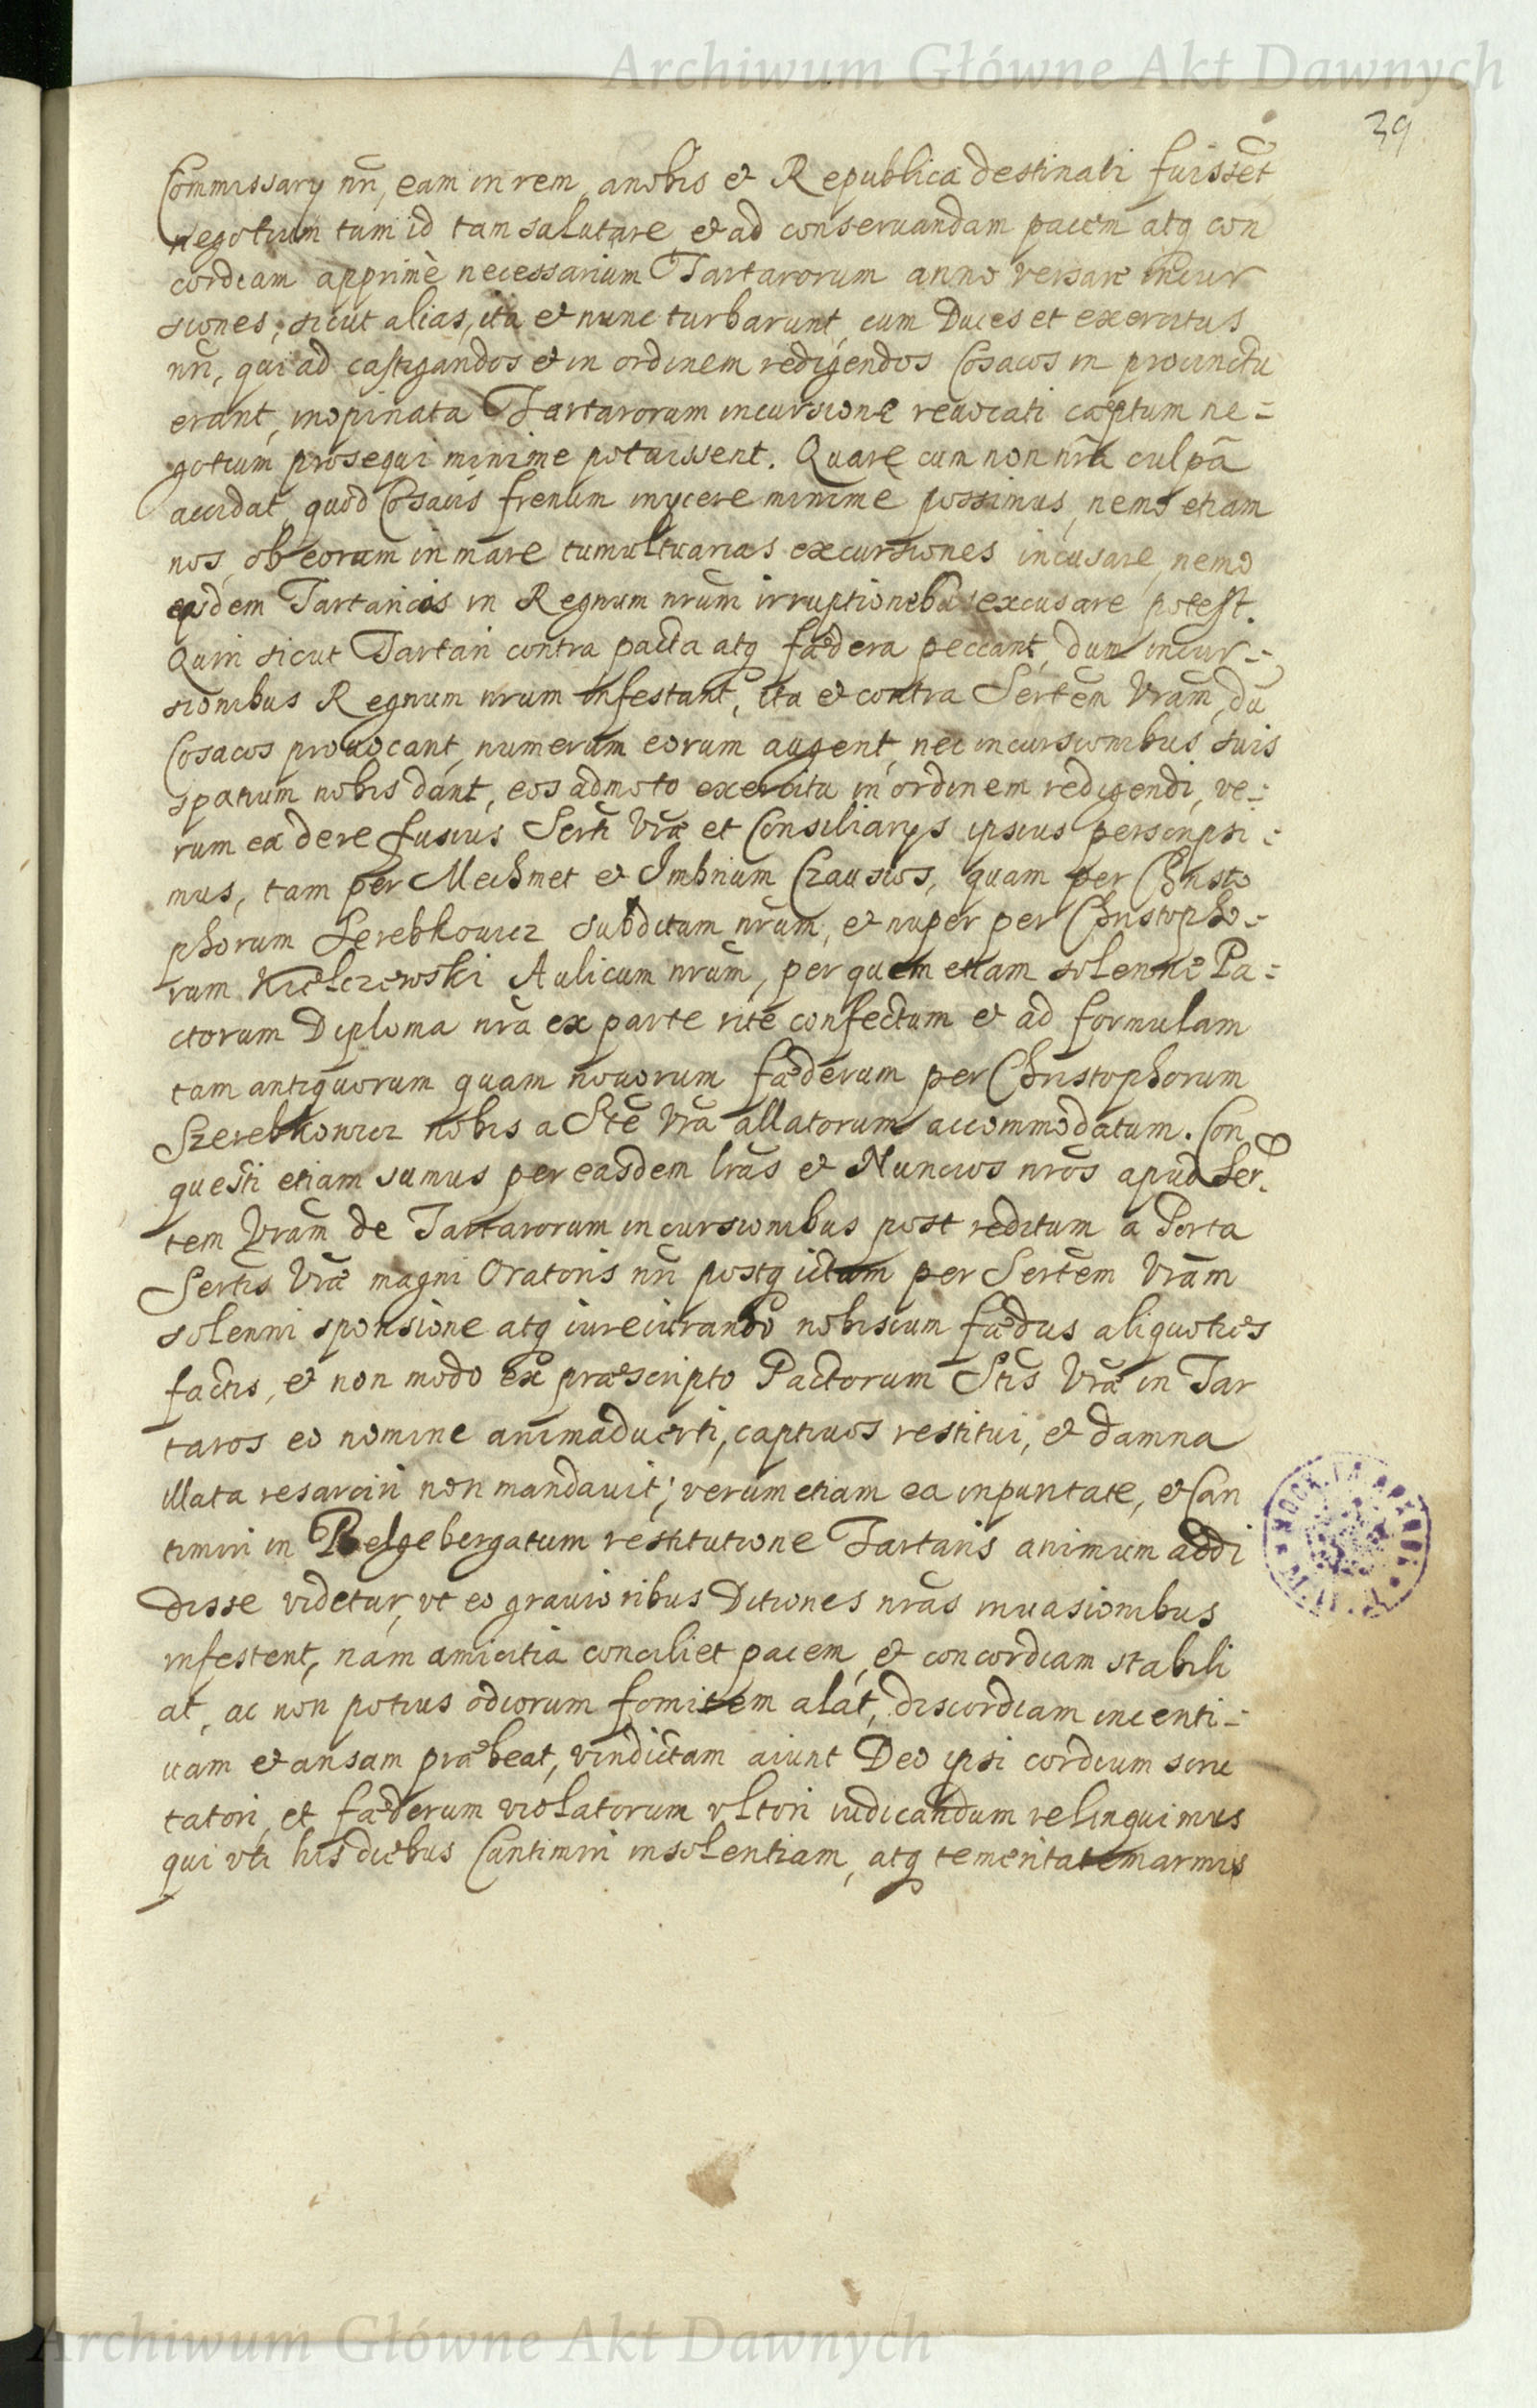 Archiwum Główne Akt Dawnych
39
Commissarÿ nr̃i, eam in rem, a nobis et Republica destinati fuissẽt
negotium tum id tam salutare et ad conseruandam pacem atq con
cordiam apprimè necessarium Tartarorum anno versare incur
siones, sicut alias, ita et nunc turbarunt, cum Duces et exercitus
nr̃i, qui ad castigandos et in ordinem redigendos Cosacos in procinctu
erant, inopinata Tartarorum incursione reuocati cæptum ne-
gotium prosequi minime potuissent. Quare cum non nr̃a culpâ
accidat, quòd Cosacis frenum inÿcere minimè possimus, nemo etiam
nos, ob eorum in mare tumultuarias excursiones incusare, nemo
eisdem Tartaricis in Regnum nrũm irruptionibus excusare potest.
Quin sicut Tartari contra pacta atq fædera peccant, dum incur-
sionibus Regnum nrum infestant, ita et contra Sertẽm Vrãm, dũ
Cosacos prouocant, numerum eorum augent, nec incursionibus suis
spatium nobis dant, eos admoto exercitu in ordinem redigendi, ve-
rum ea de re fusius Serti Vræ et Consiliarÿs ipsius perscripsi-
mus, tam per Mechmet et Imbrium Czausios, quam per Christo
phorum Serebkowicz subditum nrũm, et nuper per Christopho-
rum Kiełczewski Aulicum nrũm, per quem etiam solenne Pa-
ctorum Diploma nrã ex parte ritè confectum et ad formulam
tam antiquorum quam nouorum fæderum per Christophorum
Szerebkowicz nobis a Stẽ Vrã allatorum accommodatum. Con
questi etiam sumus per easdem lrãs et Nuncios nrõs apud Ser.
tem Vrãm de Tartarorum incursionibus post reditum a Porta
Sertis Vræ magni Oratoris nr̃i postq ictum per Sertẽm Vrãm
solenni sponsione atq iureiurando nobiscum fædus aliquoties
factis, et non modo ex præscripto Pactorum Stis Vræ in Tar
taros eo nomine animaduerti, captiuos restitui, et damna
illata resarciri non mandauit, verùm etiam ea inpunitate, et Can
timiri in Belgebergatum restitutione Tartaris animum addi
disse videtur, vt eo grauioribus Ditiones nrãs inuasionibus
infestent, nam amicitia conciliet pacem, et concordiam stabili
at, ac non potius odiorum fomitem alat, discordiam incenti-
uam et ansam præbeat, vindictam aiunt Deo ipsi cordium scru
tatori, et fæderum violatorum vltori iudicandum relinquimus
qui vti his diebus Cantimiri insolentiam, atq temeritatem armis
Archiwum Główne Akt Dawnych